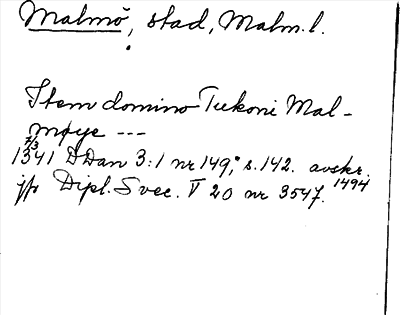 Malmö, stad, Malm.l.
Item domino Tukoni Mal-
møye ---
7/3
1341 DDan 3:1 nr 149, s. 142. avskr.
1494
jfr Dipl. Svec. V 20 nr 3547.